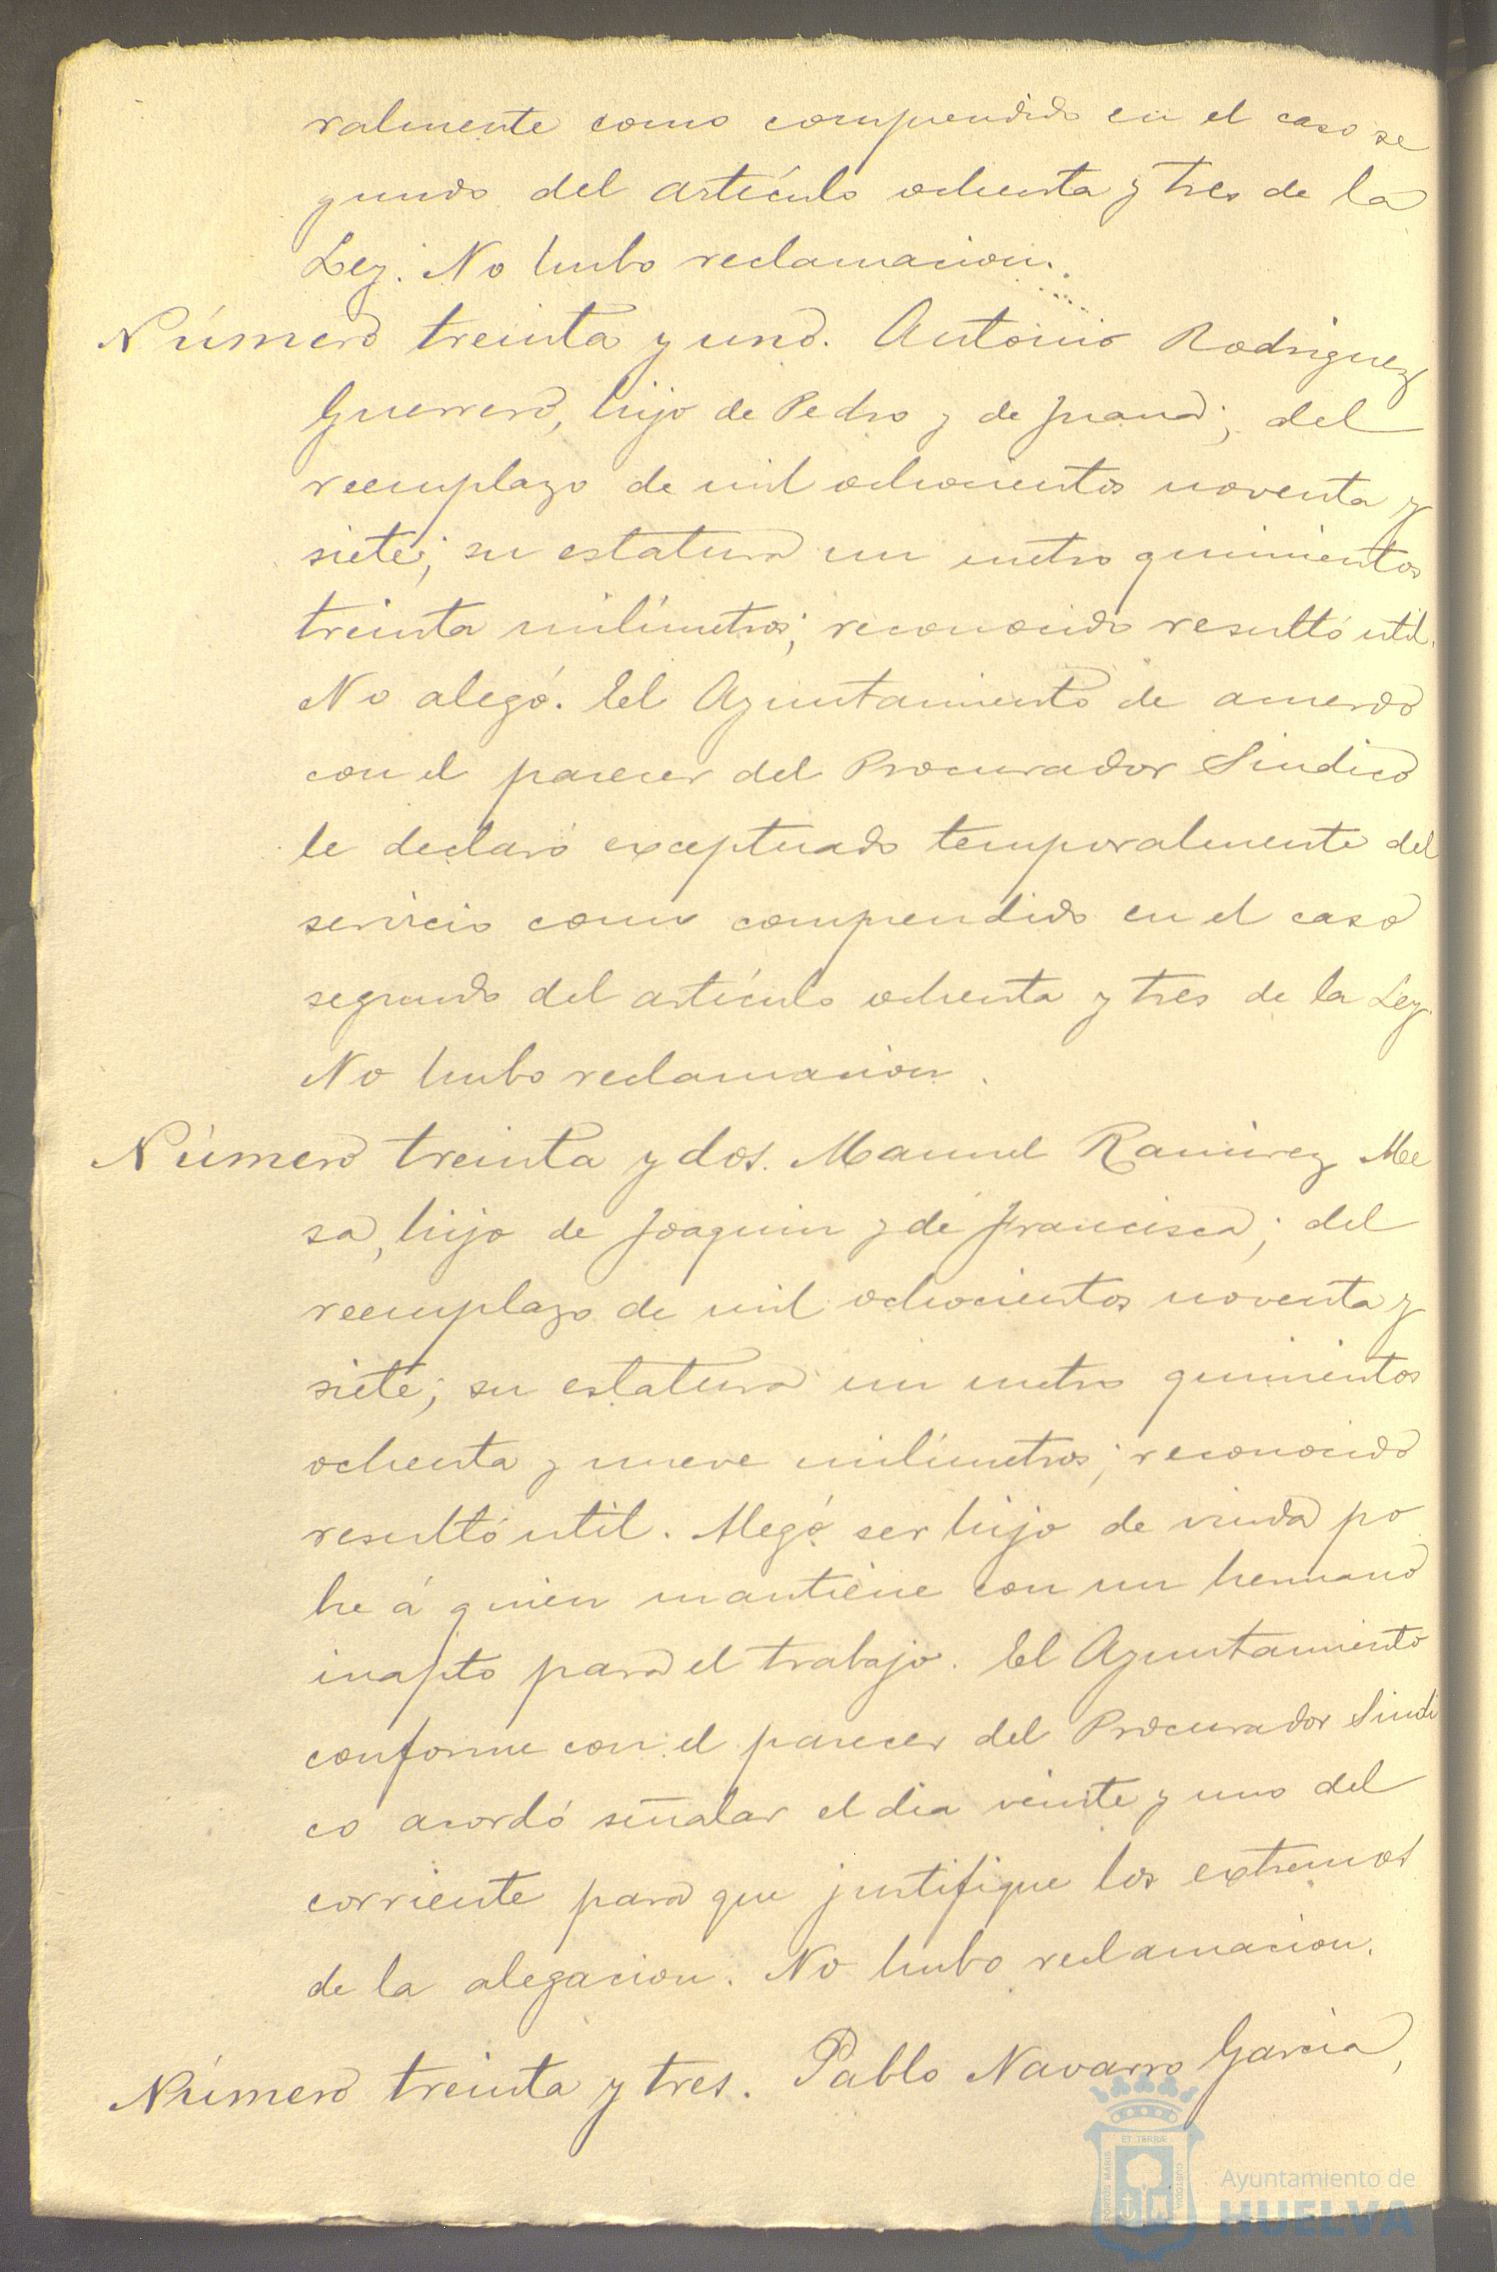 ralmente como comprendido en el caso se
gundo del artículo ochenta y tres de la
Ley. No hubo reclamacion.
Número treinta y uno. Antonio Rodriguez
Guerrero, hijo de Pedro y de Juana; del
reemplazo de mil ochocientos noventa y
siete; su estatura un metro quinientos
treinta milímetros; reconocido resultó util.
No alegó. El Ayuntamiento de acuerdo
con el parecer del Procurador Sindico
le declaró exceptuado temporalmente del
servicio como comprendido en el caso
segundo del artículo ochenta y tres de la Ley.
No hubo reclamacion.
Número treinta y dos. Manuel Ramirez Me
sa, hijo de Joaquin y de Francisca; del
reemplazo de mil ochocientos noventa y
siete; su estatura un metro quinientos
ochenta y nueve milímetros; reconocido
resultó util. Alegó ser hijo de viuda po
bre á quien mantiene con un hermano
inapto para el trabajo. El Ayuntamiento
conforme con el parecer del Procurador Sindi
co acordó señalar el dia veinte y uno del
corriente para que justifique los extremos
de la alegacion. No hubo reclamacion.
Número treinta y tres. Pablo Navarro Garcia,
ET TERRÆ
PORTUS MARIS
CUSTODIA
Ayuntamiento de
HUELVA